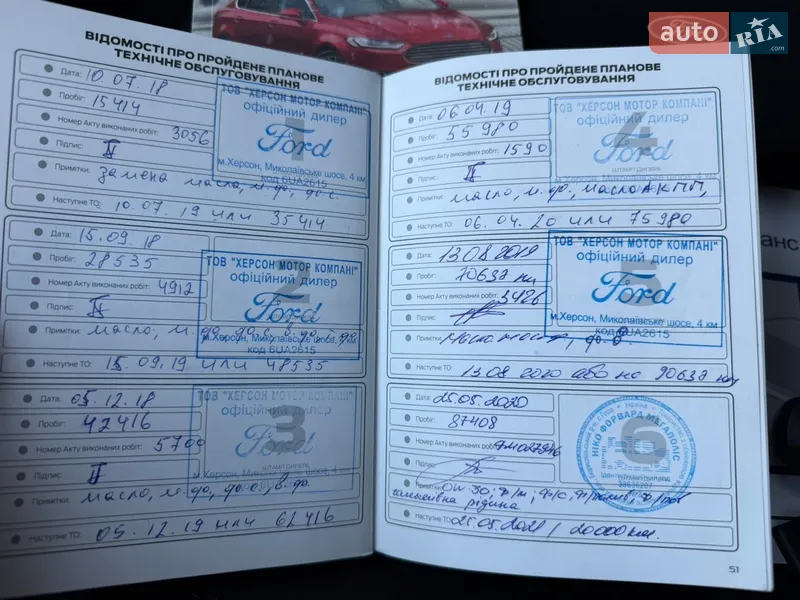 auto RIA .com
ВІДОМОСТІ ПРО ПРОЙДЕНЕ ПЛАНОВЕ
ТЕХНІЧНЕ ОБСЛУГОВУВАННЯ
Дата: 10.07.18
Пробіг: 15414
Номер Акту виконаних робіт: 3056
Підпис:
Примітки: замена масла, м.ф.,
Наступне ТО: 10.07.19 или 35414
1
ТОВ "ХЕРСОН МОТОР КОМПАНІ"
офіційний дилер
Ford
м.Херсон, Миколаївське шосе, 4 км
код 6UA2615
Дата: 15.09.18
Пробіг: 28535
Номер Акту виконаних робіт: 4912
Підпис:
Примітки: масло,
Наступне ТО: 15.09.19 или 48535
2
ТОВ "ХЕРСОН МОТОР КОМПАНІ"
офіційний дилер
Ford
м.Херсон, Миколаївське шосе,
код 6UA2615
Дата: 05.12.18
Пробіг: 42416
Номер Акту виконаних робіт: 5700
Підпис:
Примітки: масло,
Наступне ТО: 05.12.19 или 62416
3
ТОВ "ХЕРСОН МОТОР КОМПАНІ"
офіційний дилер
Ford
ШТАМП ДИЛЕРА
м.Херсон, Миколаївське шосе, 4 км
код 6UA2615
ВІДОМОСТІ ПРО ПРОЙДЕНЕ ПЛАНОВЕ
ТЕХНІЧНЕ ОБСЛУГОВУВАННЯ
Дата: 06.04.19
Пробіг: 55980
Номер Акту виконаних робіт: 1590
Підпис:
Примітки: масло, масло АКПП,
Наступне ТО: 06.04.20 или 75980
4
ТОВ "ХЕРСОН МОТОР КОМПАНІ"
офіційний дилер
Ford
ШТАМП ДИЛЕРА
м.Херсон, Миколаївське шосе, 4 км
код 6UA2615
Дата: 13.08.2019
Пробіг: 70632 км
Номер Акту виконаних робіт: 3426
Підпис:
Примітки:
Наступне ТО: 13.08.2020 або на 90632 км
5
ТОВ "ХЕРСОН МОТОР КОМПАНІ"
офіційний дилер
Ford
м.Херсон, Миколаївське шосе, 4 км
код 6UA2615
Дата: 25.05.2020
Пробіг: 87408
Номер Акту виконаних робіт:
Підпис:
Примітки:
рідина
Наступне ТО: 25.05.2021 / 20000 км.
6
НІКО ФОРВАРД МЕГАПОЛІС
51